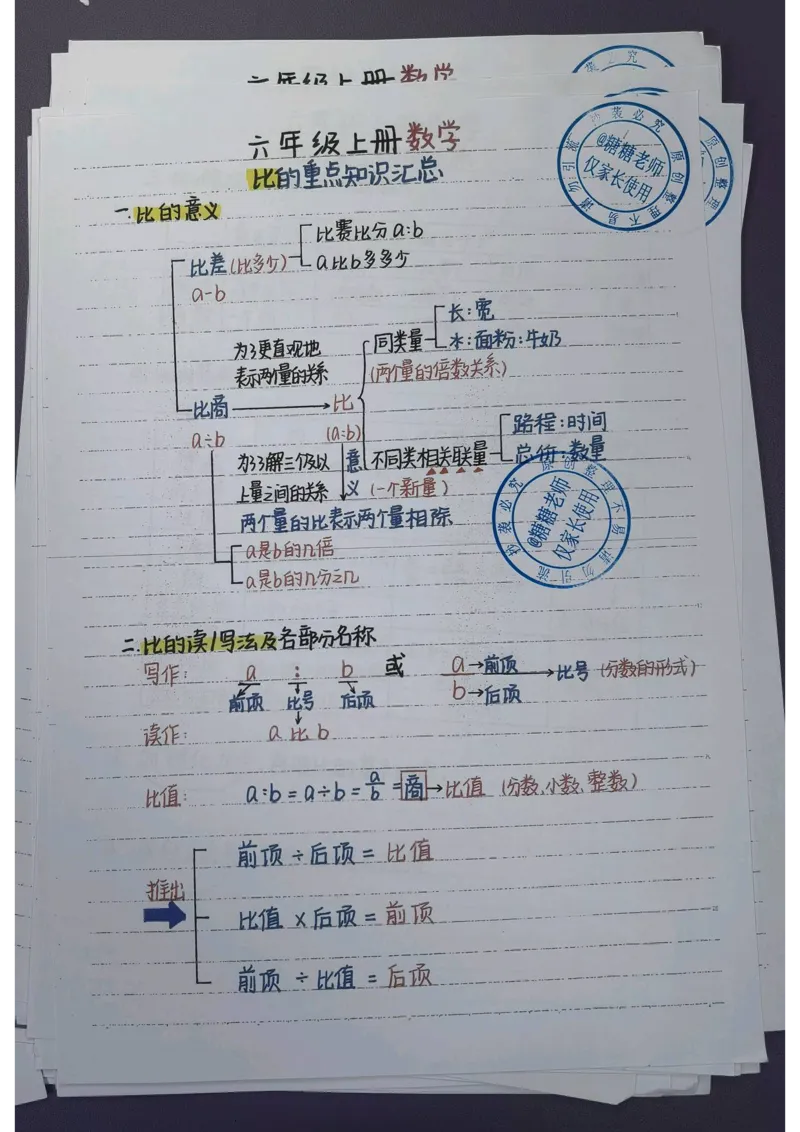 六年级上册数学
六年级上册数学
比的重点知识汇总
一.比的意义
比赛比分a:b
比差(比多少)
a比b多多少
a-b
长:宽
为了更直观地
同类量
水:面粉:牛奶
表示两个量的关系
(两个量的倍数关系)
比商
比
a÷b
(a:b)
路程:时间
为了了解三个及以
意
不同类相关联量
总价:数量
上量之间的关系
义
(一个新量)
两个量的比表示两个量相除
a是b的几倍
a是b的几分之几
抄袭必究 原创整理不易 请勿引流
@糖糖老师
仅家长使用
抄袭必究 原创整理不易 请勿引流
@糖糖老师
仅家长使用
原创整理
二.比的读/写法及各部分名称
写作: a : b 或 a→前项
b→后项
→比号(分数的形式)
前项 比号 后项
读作: a比b
比值: a:b=a÷b=a/b=商→比值(分数、小数、整数)
前项÷后项=比值
推出
比值×后项=前项
前项÷比值=后项